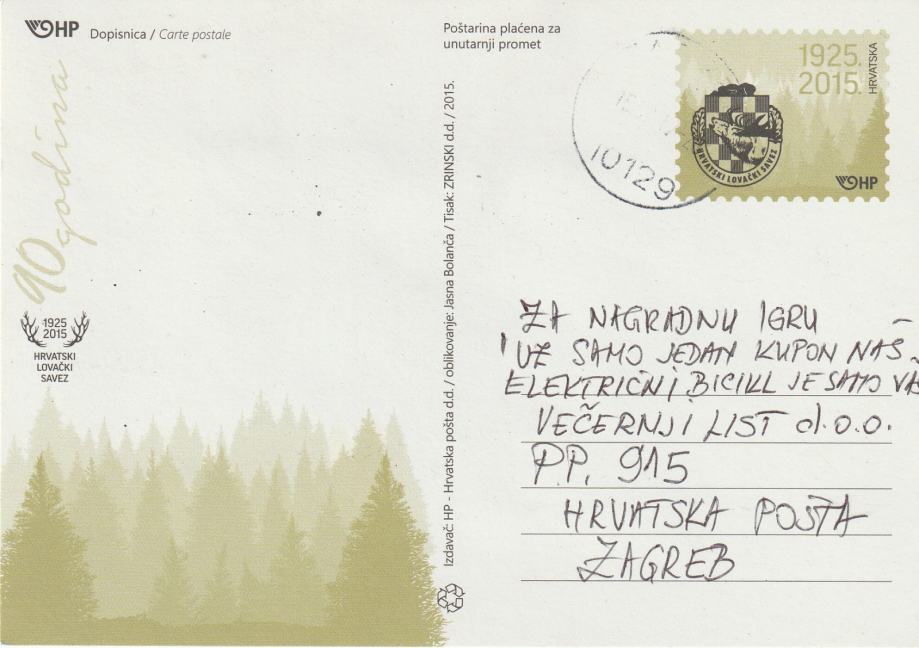 HP Dopisnica / Carte postale
90 godina
1925
2015
HRVATSKI
LOVAČKI
SAVEZ
Poštarina plaćena za
unutarnji promet
Izdavač: HP - Hrvatska pošta d.d. / oblikovanje: Jasna Bolanča / Tisak: ZRINSKI d.d. / 2015.
10129
1925.
2015.
HRVATSKA
HRVATSKI LOVAČKI SAVEZ
HP
ZA NAGRADNU IGRU
UZ SAMO JEDAN KUPON NAŠ
ELEKTRIČNI BICIKL JE SAMO VAŠ
VEČERNJI LIST d.o.o.
P.P. 915
HRVATSKA POŠTA
ZAGREB